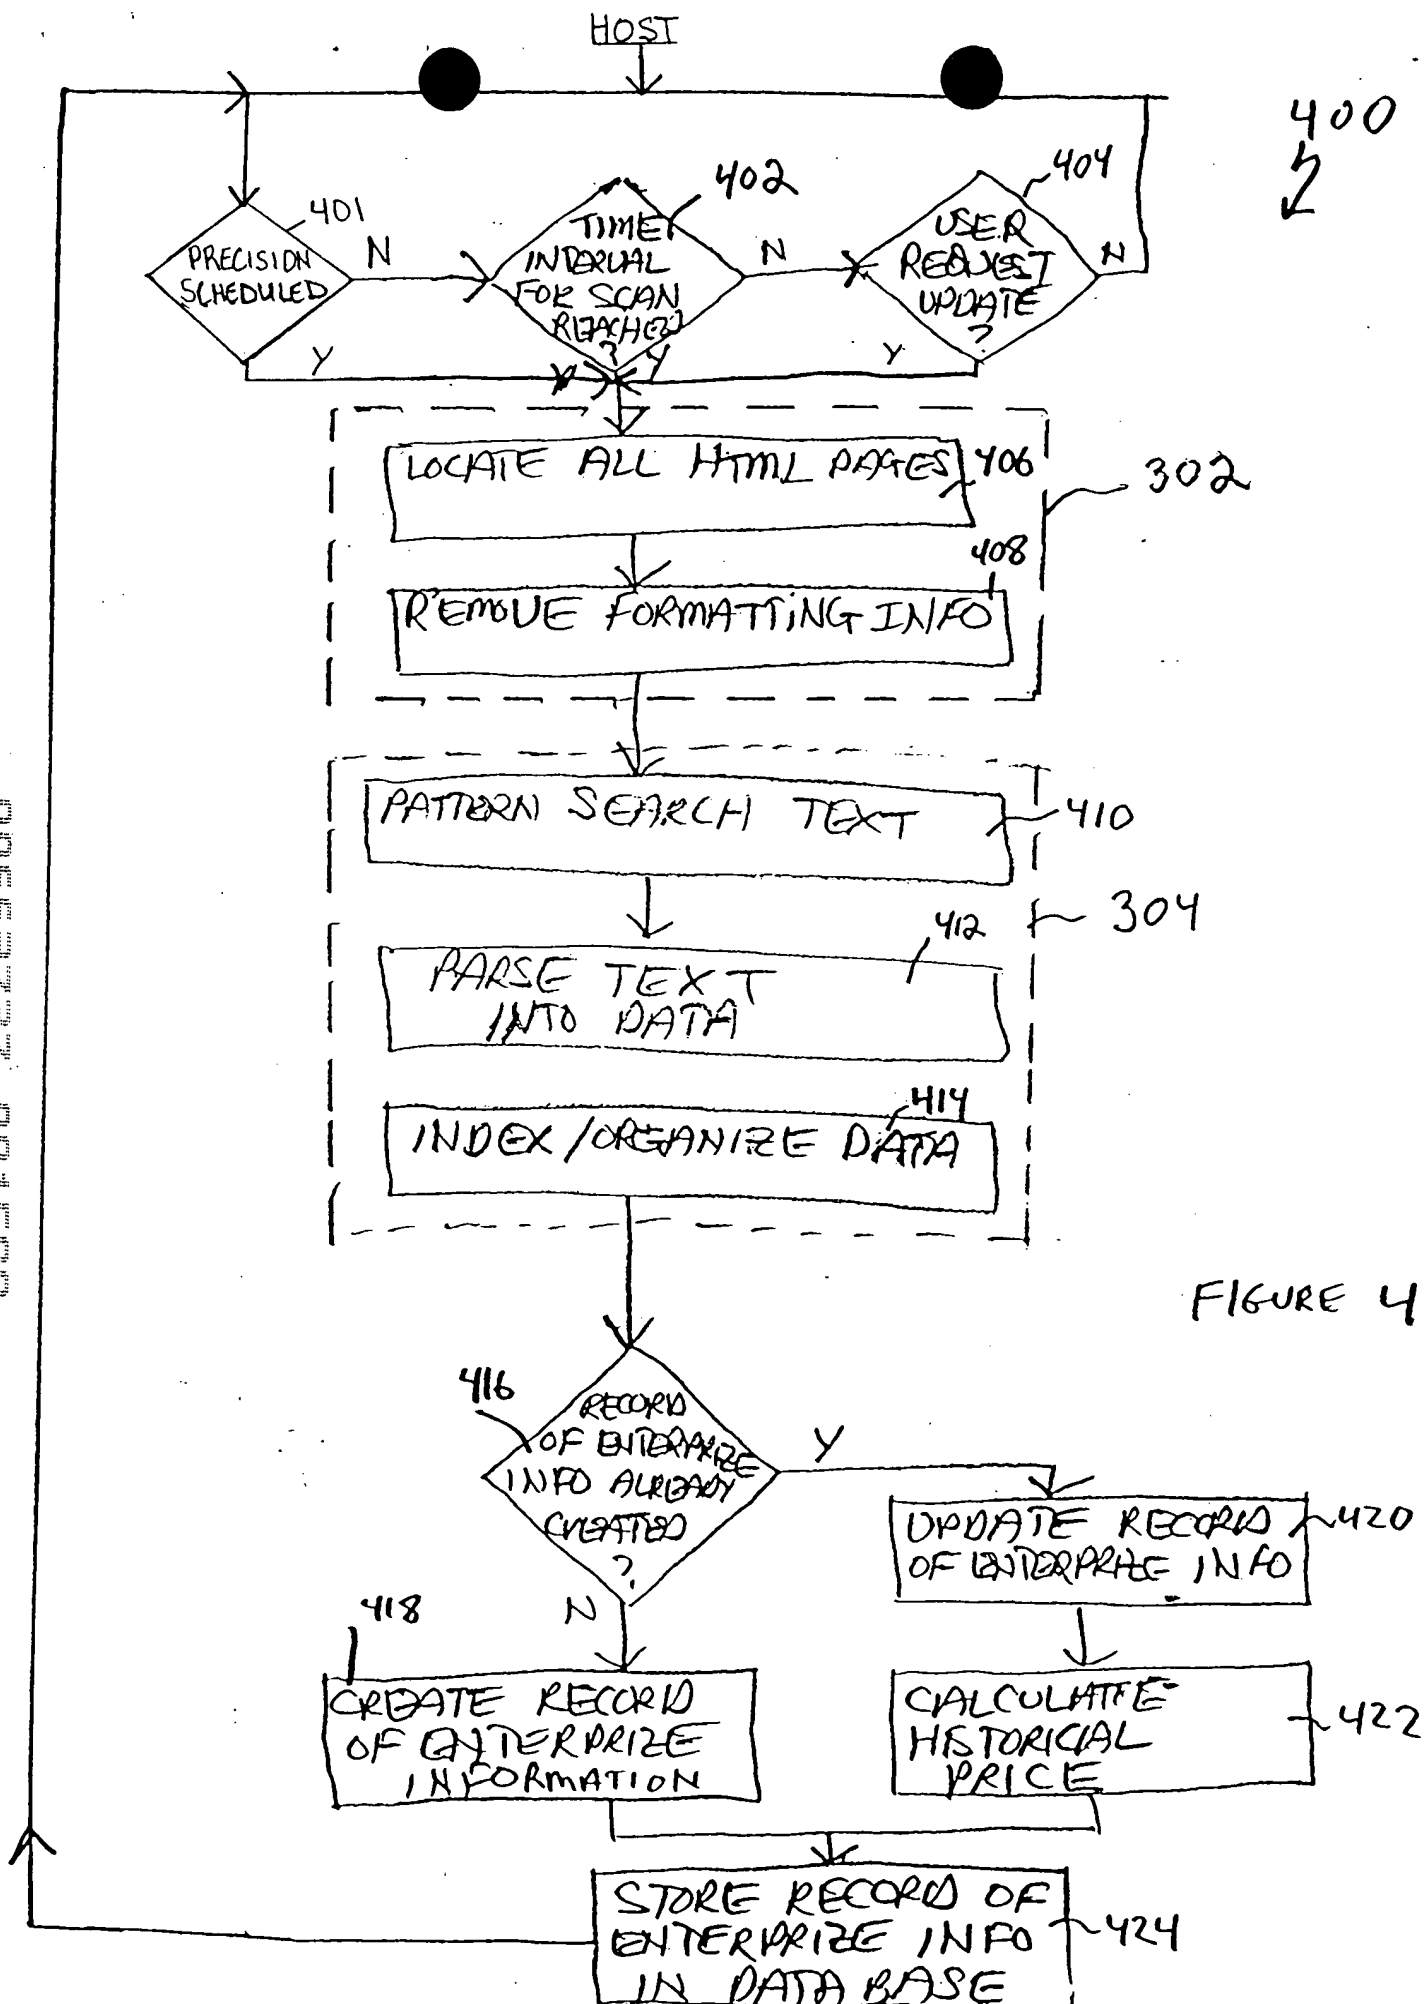 HOST
400
401
402
404
PRECISION
SCHEDULED
N
TIME
INTERVAL
FOR SCAN
REACHED
?
N
USER
REQUEST
UPDATE
?
N
Y
Y
Y
LOCATE ALL HTML PAGES
406
302
408
REMOVE FORMATTING INFO
PATTERN SEARCH TEXT
410
304
412
PARSE TEXT
INTO DATA
414
INDEX/ORGANIZE DATA
FIGURE 4
416
RECORD
OF ENTERPRIZE
INFO ALREADY
CREATED
?
Y
N
UPDATE RECORD
OF ENTERPRIZE INFO
420
418
CREATE RECORD
OF ENTERPRIZE
INFORMATION
CALCULATE
HISTORICIAL
PRICE
422
STORE RECORD OF
ENTERPRIZE INFO
IN DATA BASE
424